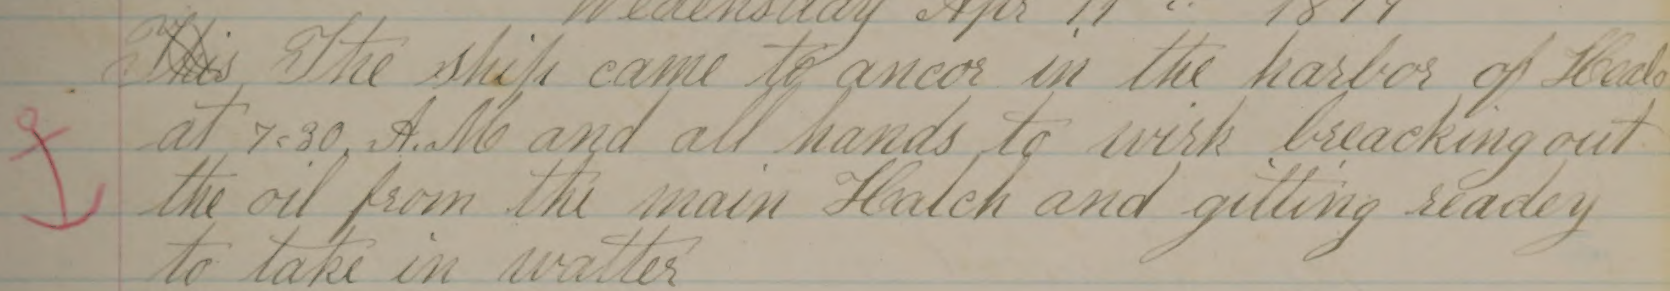 Wedensday Apr 11th 1877
This The ship came to ancor in the harbor of Healo
at 7=30, A.M and all hands to wirk breacking out
the oil from the main Hatch and gitting readey
to take in watter